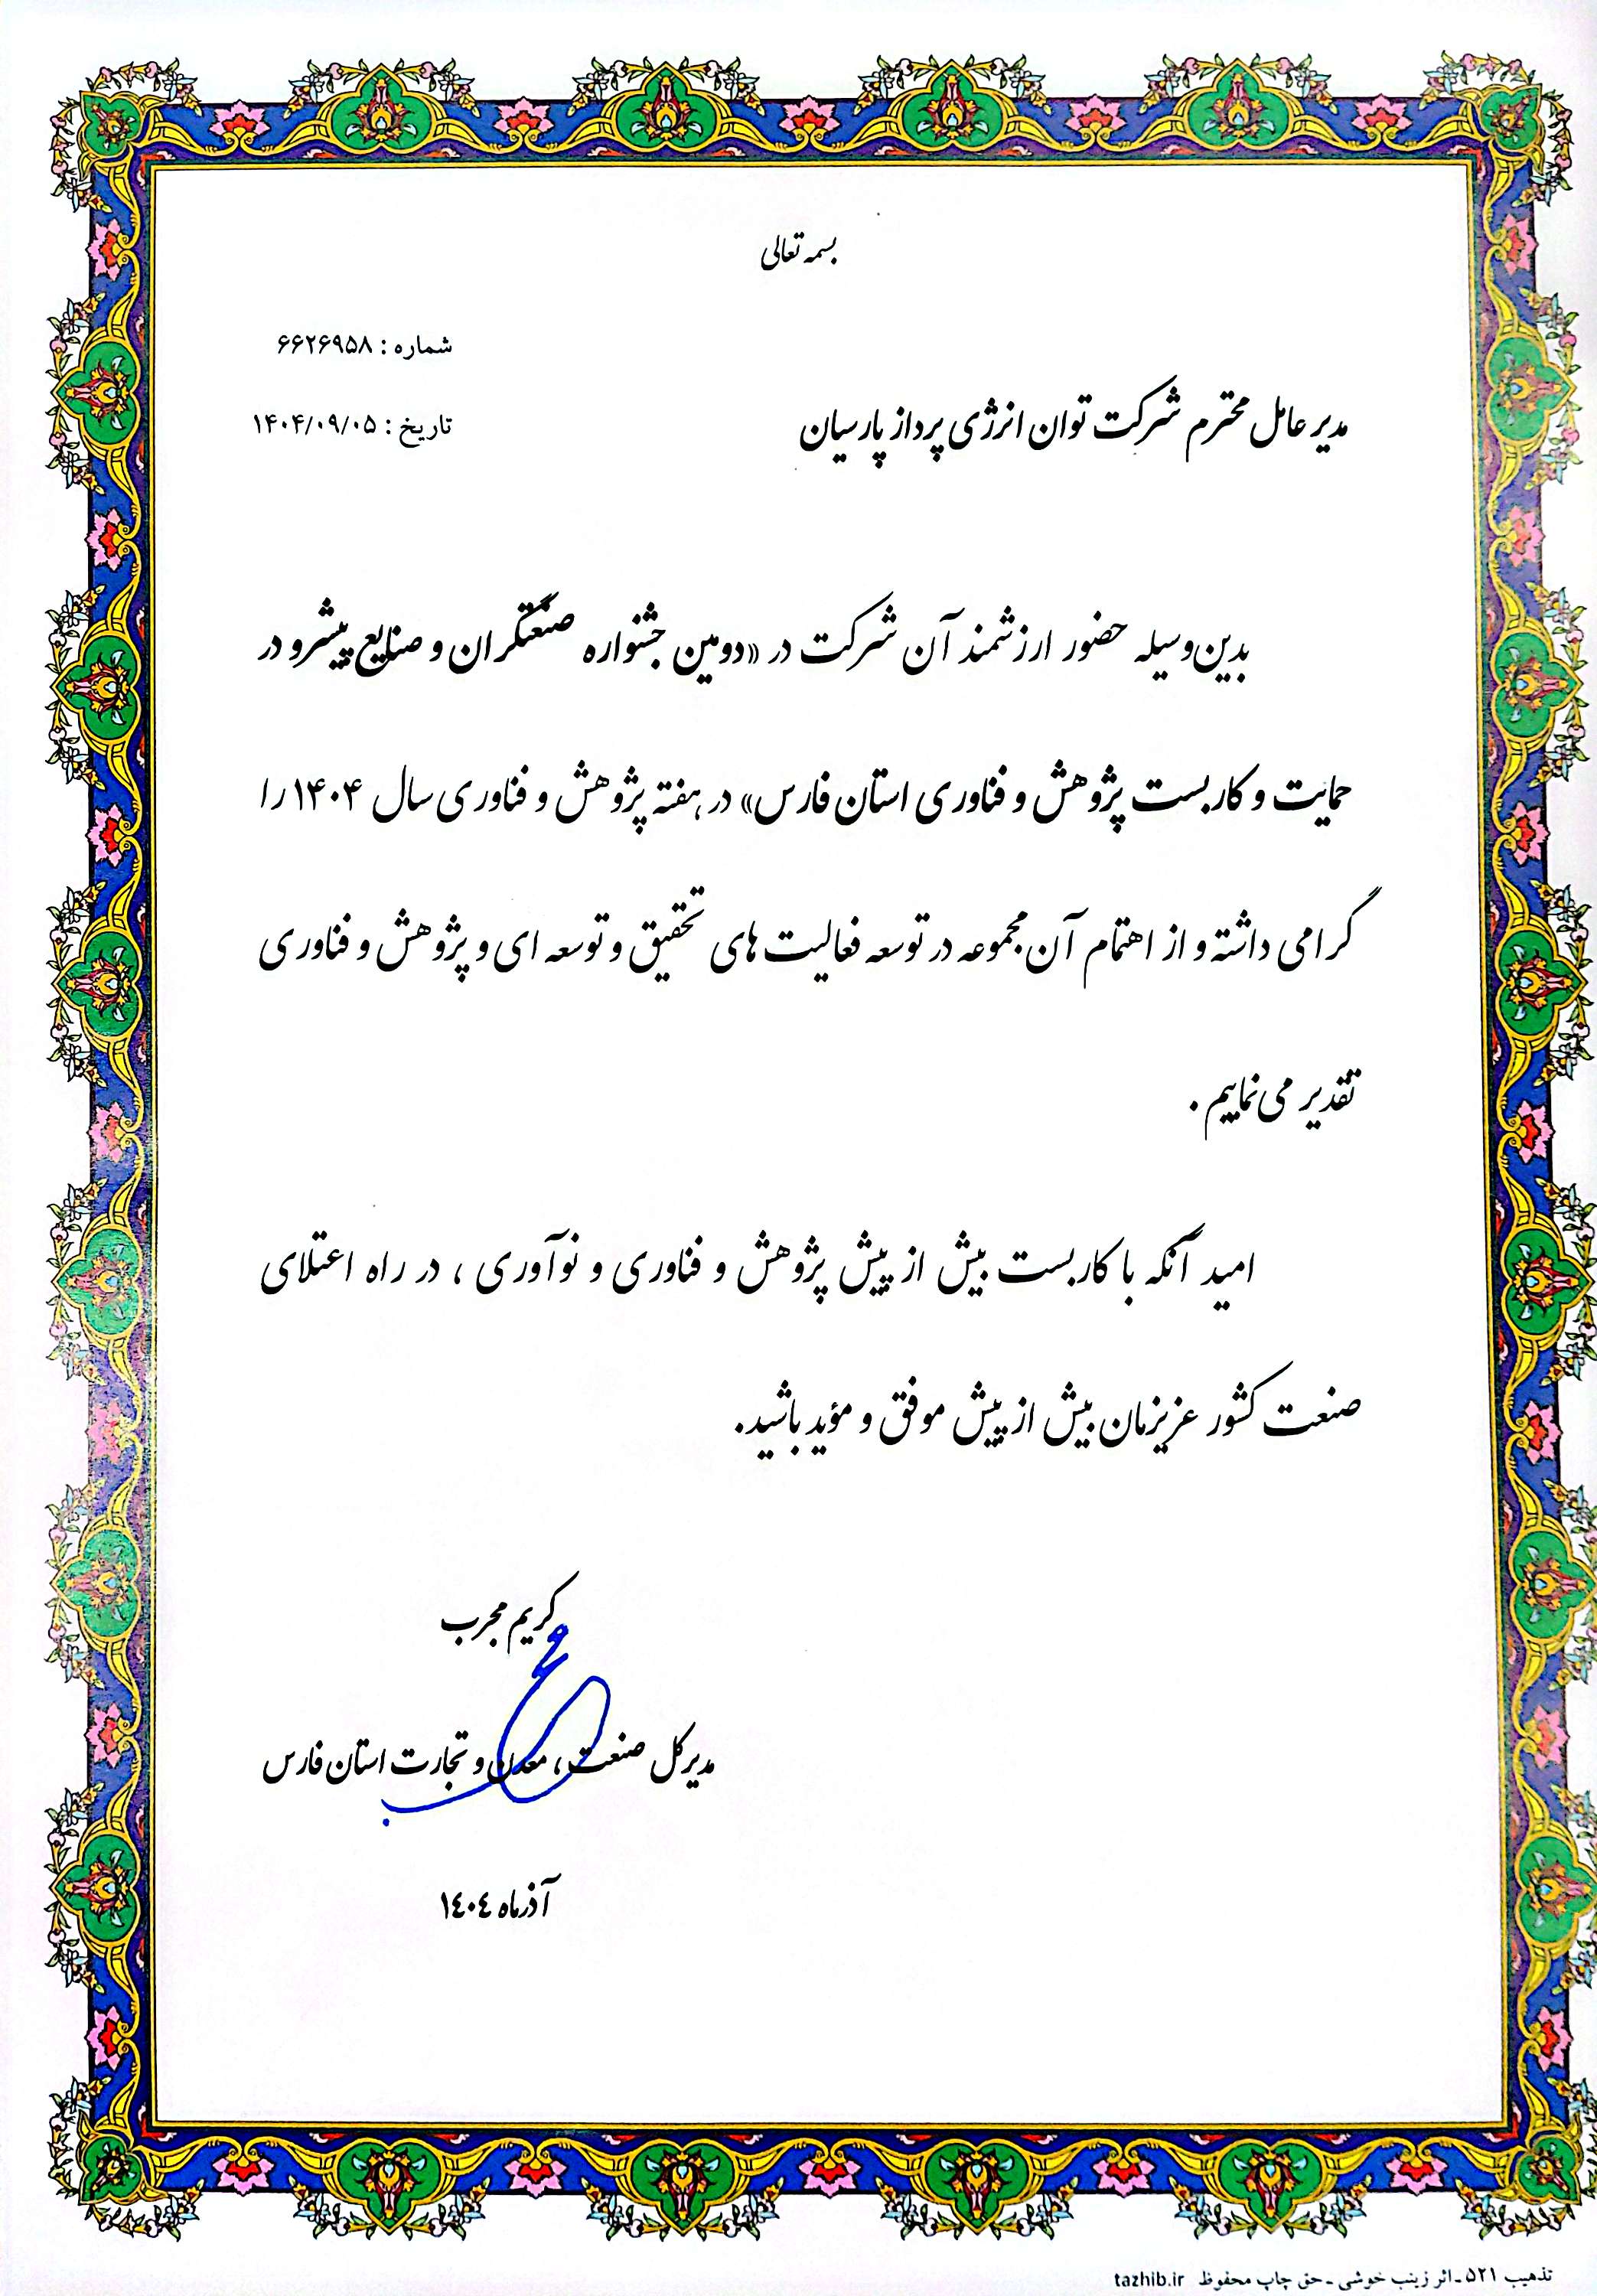 بسمه تعالی
شماره : ۶۶۲۶۹۵۸
تاریخ : ۱۴۰۴/۰۹/۰۵
مدیر عامل محترم شرکت توان انرژی پرداز پارسیان
بدین‌وسیله حضور ارزشمند آن شرکت در «دومین جشنواره صنعتگران و صنایع پیشرو در
حمایت و کاربست پژوهش و فناوری استان فارس» در هفته پژوهش و فناوری سال ۱۴۰۴ را
گرامی داشته و از اهتمام آن مجموعه در توسعه فعالیت های تحقیق و توسعه ای و پژوهش و فناوری
تقدیر می‌نماییم .
امید آنکه با کاربست بیش از پیش پژوهش و فناوری و نوآوری ، در راه اعتلای
صنعت کشور عزیزمان بیش از پیش موفق و مؤید باشید.
کریم مجرب
مدیرکل صنعت ، معدن و تجارت استان فارس
آذرماه ١٤٠٤
تذهیب ۵۲۱ - اثر زینب خوشی - حق چاپ محفوظ tazhib.ir